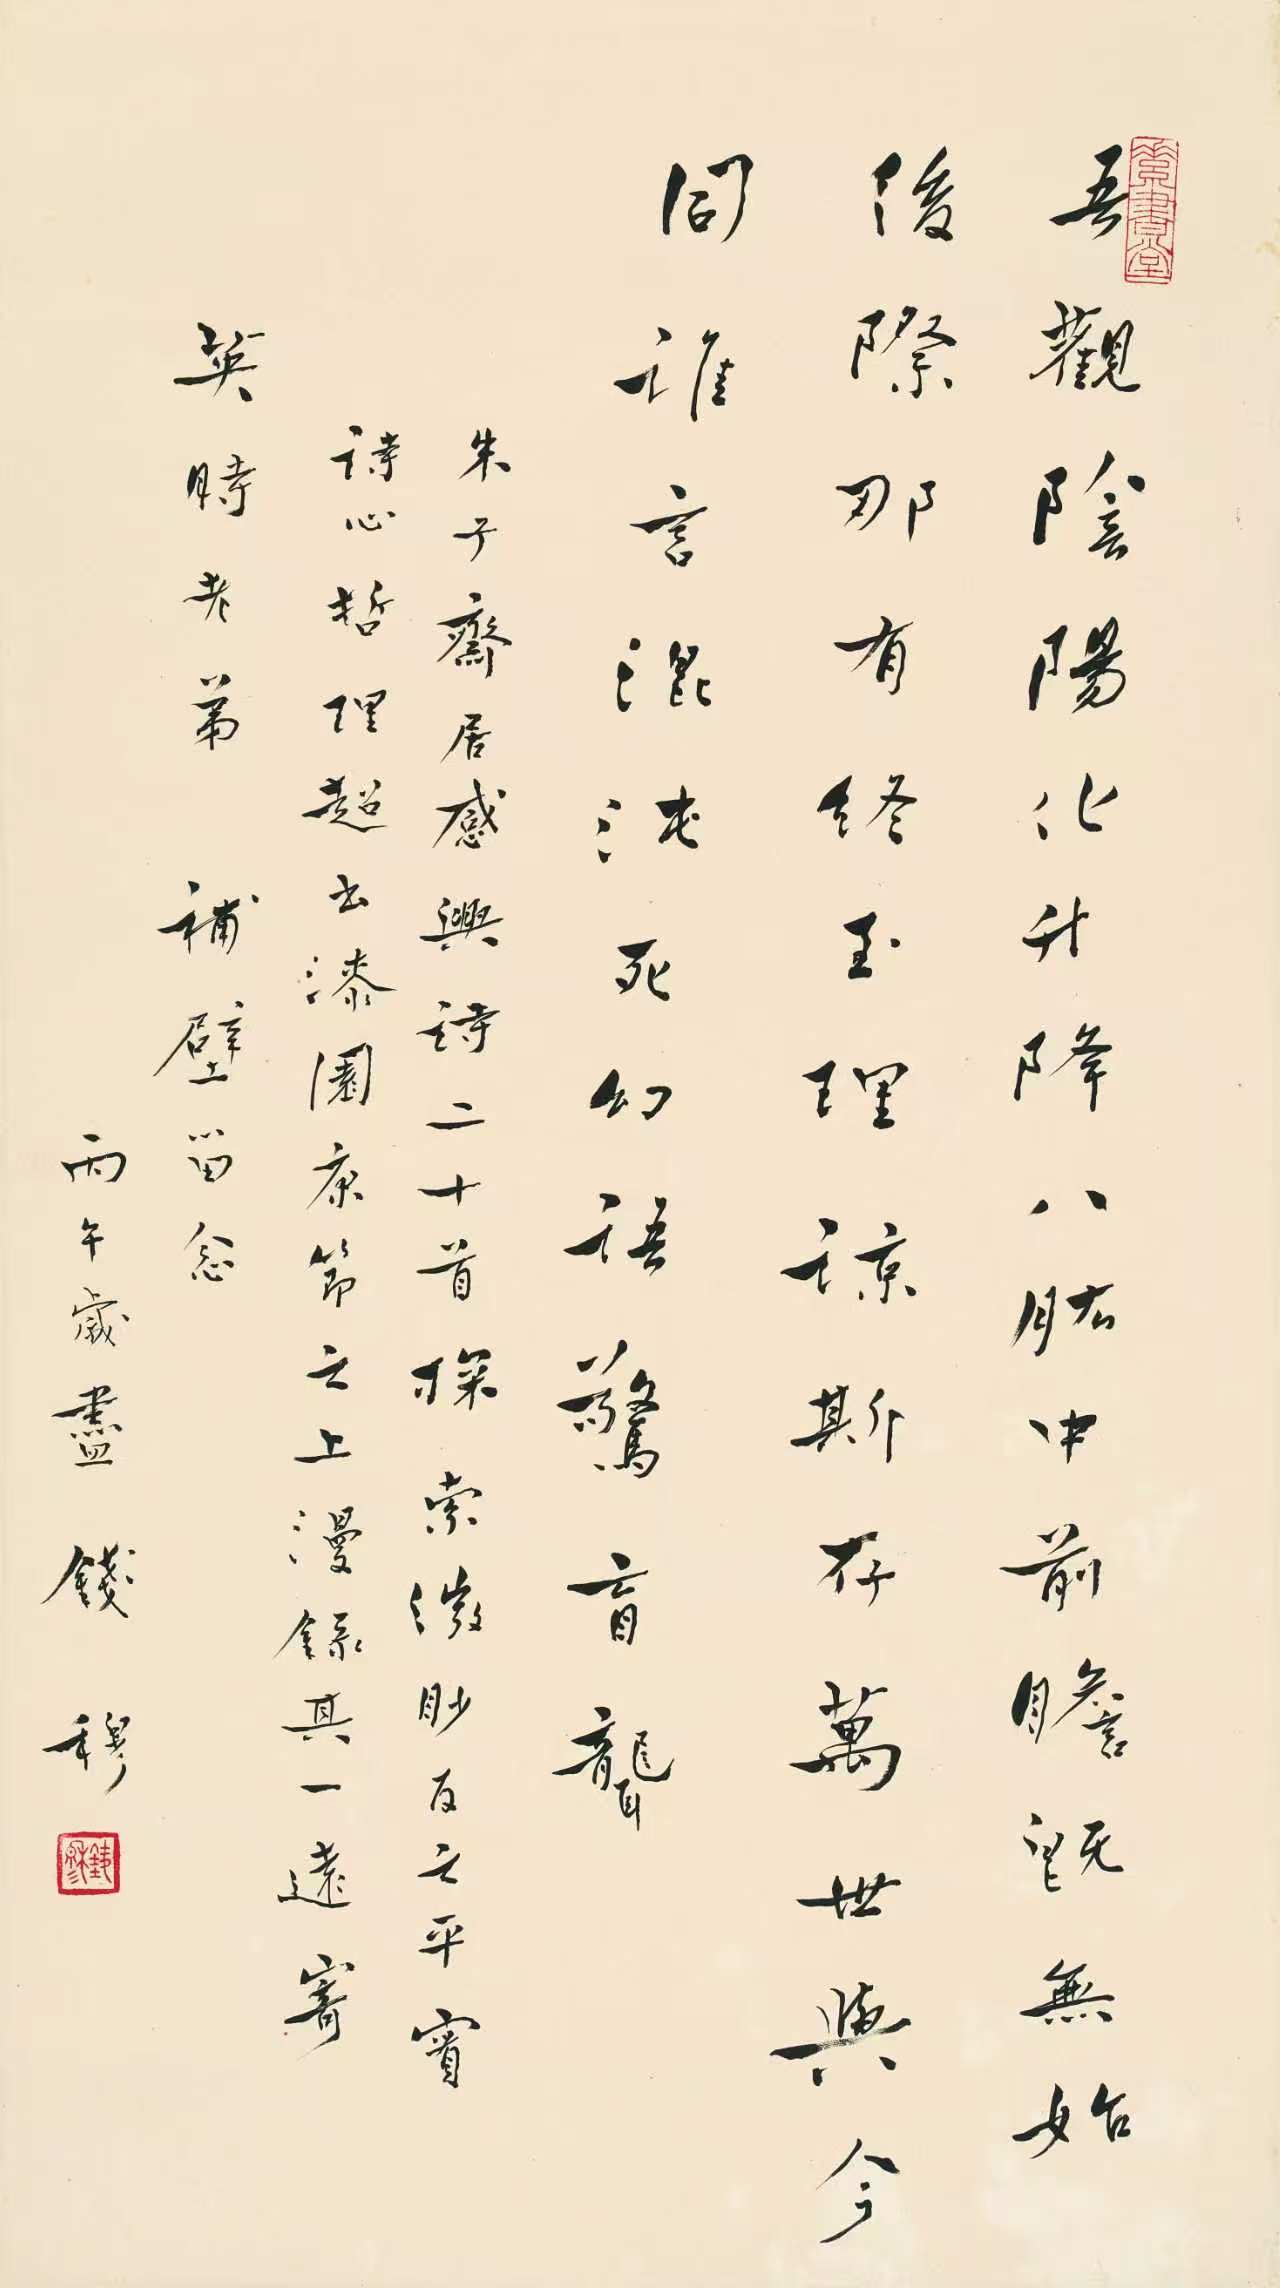 素書堂
吾觀陰陽化升降八肱中前瞻既無始
後際那有終至理諒斯存萬世與今
同誰言混沌死幻語驚盲聾
朱子齋居感興詩二十首探索微眇反之平實
詩心哲理超出漆園康節之上漫錄其一遠寄
英時老弟 補壁留念
丙午歲盡 錢穆
錢穆